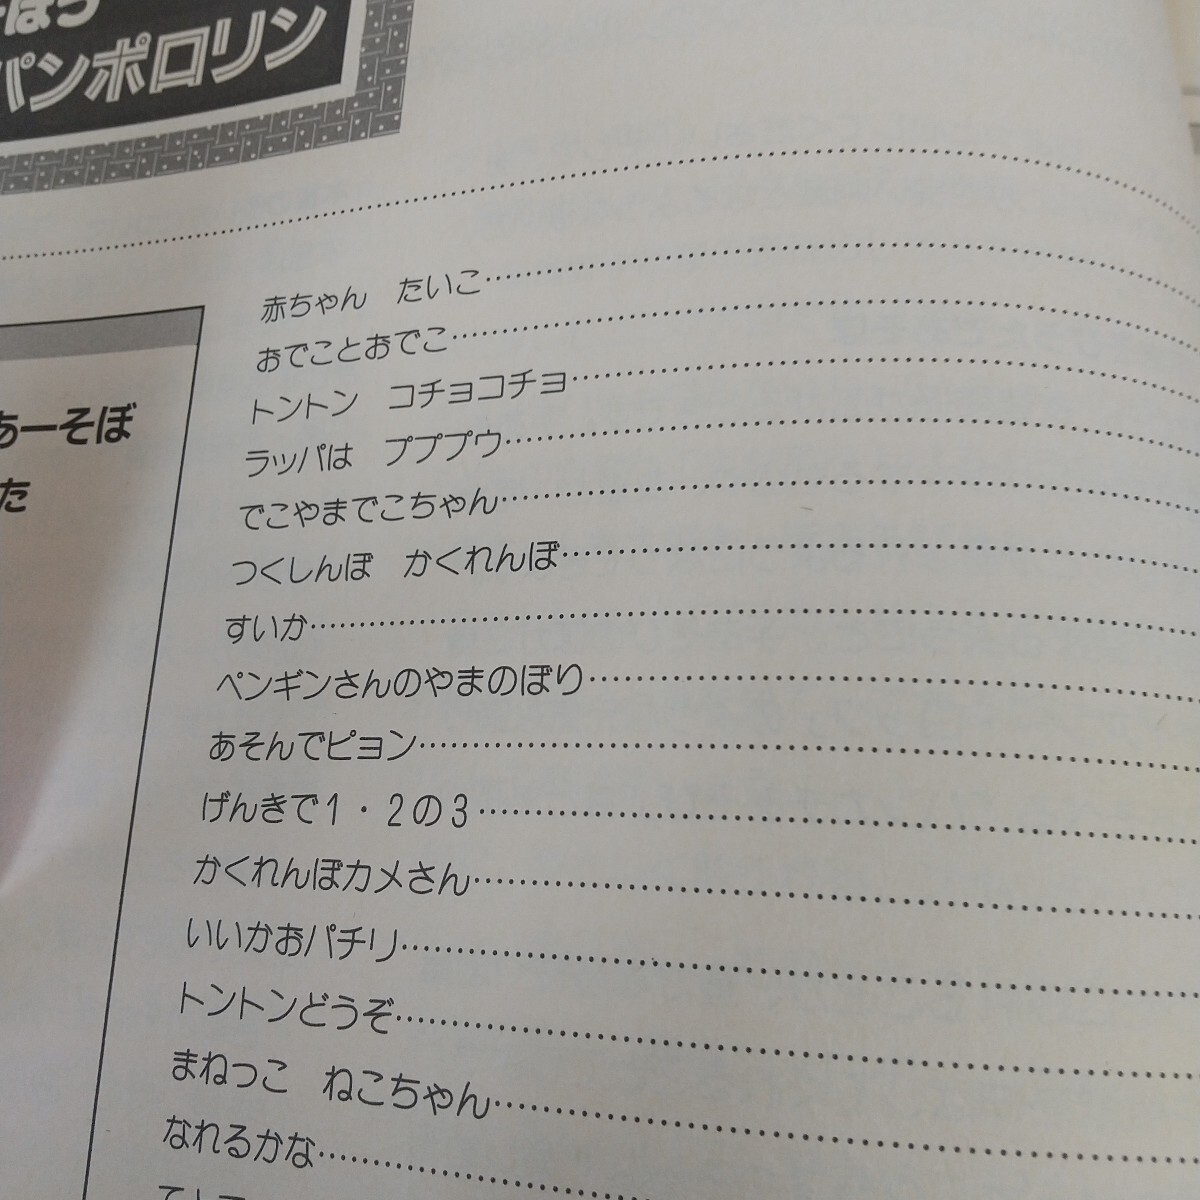 パンポロリン
赤ちゃん　たいこ
おでことおでこ
トントン　コチョコチョ
ラッパは　プププウ
でこやまでこちゃん
つくしんぼ　かくれんぼ
すいか
ペンギンさんのやまのぼり
あそんでピョン
げんきで1・2の3
かくれんぼカメさん
いいかおパチリ
トントンどうぞ
まねっこ　ねこちゃん
なれるかな
あーそぼ
た